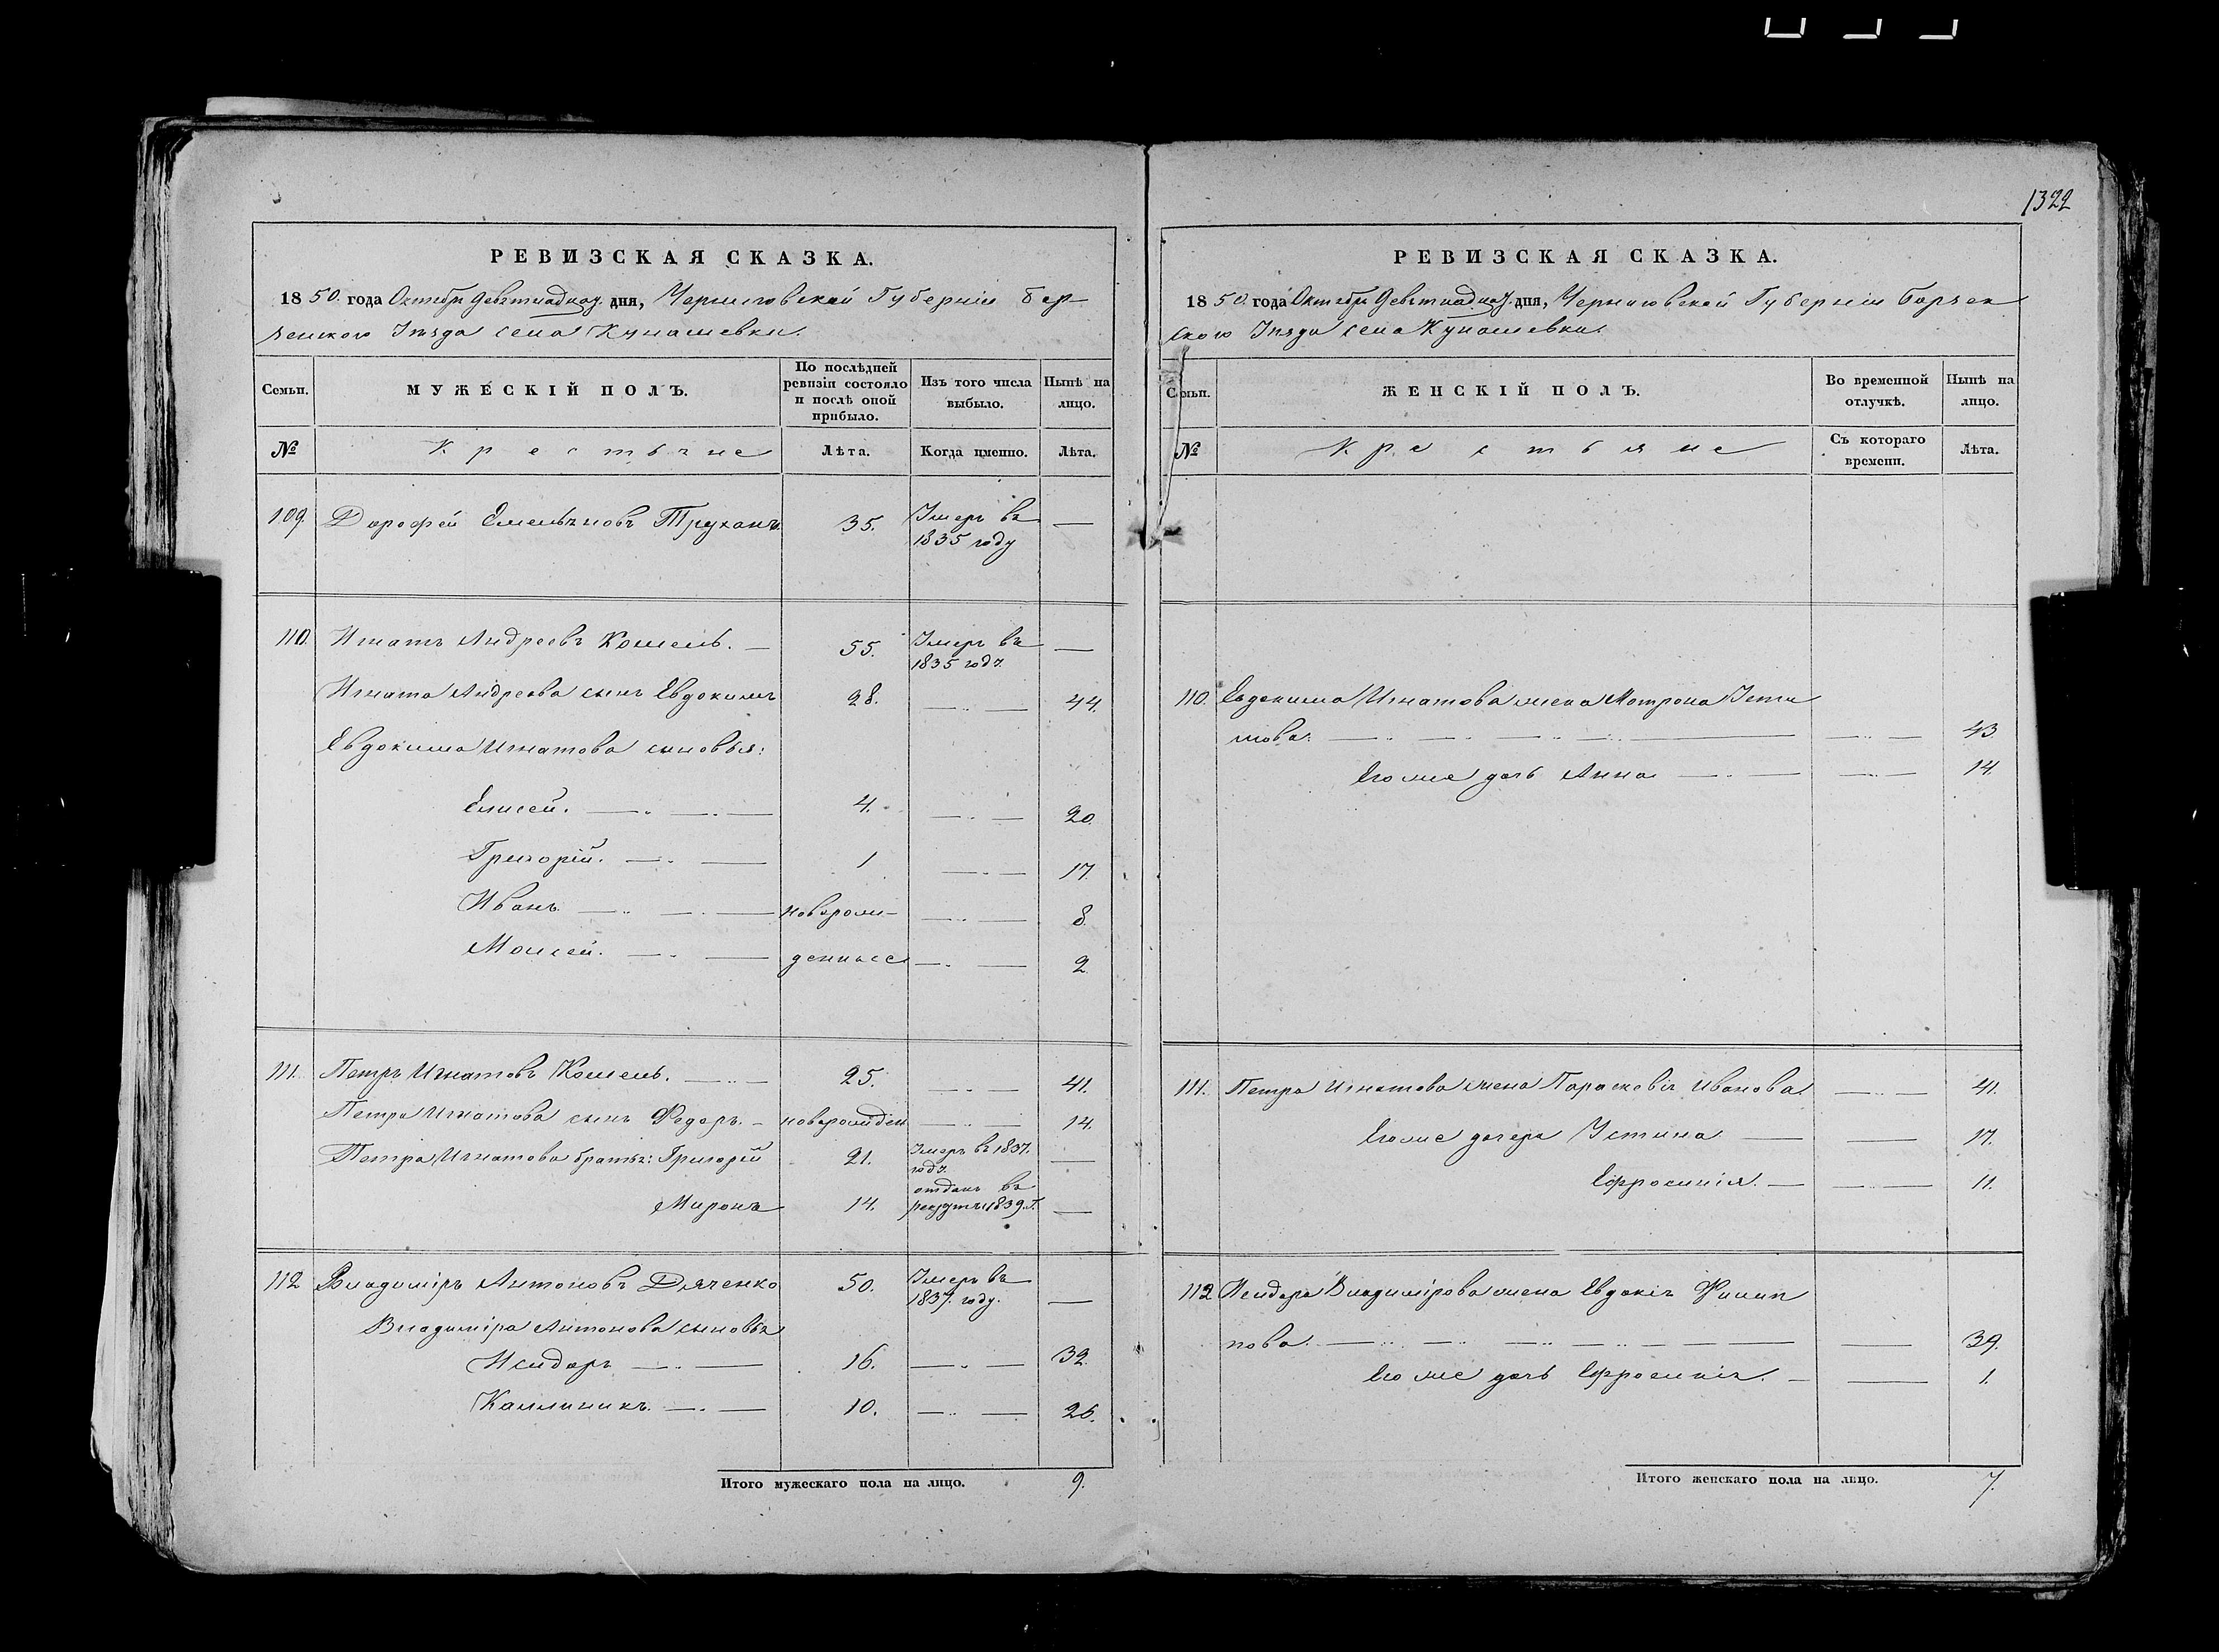 1322
РЕВИЗСКАЯ СКАЗКА.
1850. года Октября Девятнадцат. дня, Черниговской Губерніи Бор-
зенского Уѣзда села Кунашевки.
Семьи.
МУЖЕСКІЙ ПОЛЪ.
По послѣдней ревизіи состояло и послѣ оной прибыло.
Изъ того числа выбыло.
Нынѣ на лицо.
№
Крестьяне
Лѣта.
Когда именно.
Лѣта.
109. Дорофей Емельяновъ Труханъ. 35. Умеръ въ —
1835 году
110. Игнатъ Андреевъ Кошель. — 55. Умеръ въ —
1835 году.
Игната Андреева сынъ Евдокимъ 28. — 44.
Евдокима Игнатова сыновья:
Елисей. — 4. — 20.
Григорій. — 1 — 17.
Иванъ. — новорож- — 8.
Моисей. — денные — 2
111. Петръ Игнатовъ Кошель. — 25. — 41.
Петра Игнатова сынъ Федоръ. — новорожден — 14.
Петра Игнатова братья: Григорій 21. Умеръ въ 1837. —
году.
Миронъ 14. отданъ въ
рекруты 1839.Г. —
112 Владиміръ Антоновъ Дяченко 50. Умеръ въ
1837. году. —
Владиміра Антонова сыновья
Исидоръ — 16. — 32.
Каллиникъ. — 10. — 26.
Итого мужескаго пола на лицо. 9.
РЕВИЗСКАЯ СКАЗКА.
1850. года Октября Девятнадцат. дня, Черниговской Губерніи Борзен
ского Уѣзда села Кунашевки.
Семьи.
ЖЕНСКІЙ ПОЛЪ.
Во временной отлучкѣ.
Нынѣ на лицо.
№
Крестьяне
Съ котораго времени.
Лѣта.
110. Евдокима Игнатова жена Мотрона Усти
мова. — 43.
Его же дочь Анна — 14.
111. Петра Игнатова жена Параскевія Иванова. — 41.
Его же дочери Устина — 17.
Ефросинія. — 11.
112 Исидора Владимірова жена Евдокія Филип
пова. — 39.
Его же дочь Ефросинія. — 1.
Итого женскаго пола на лицо. 7.